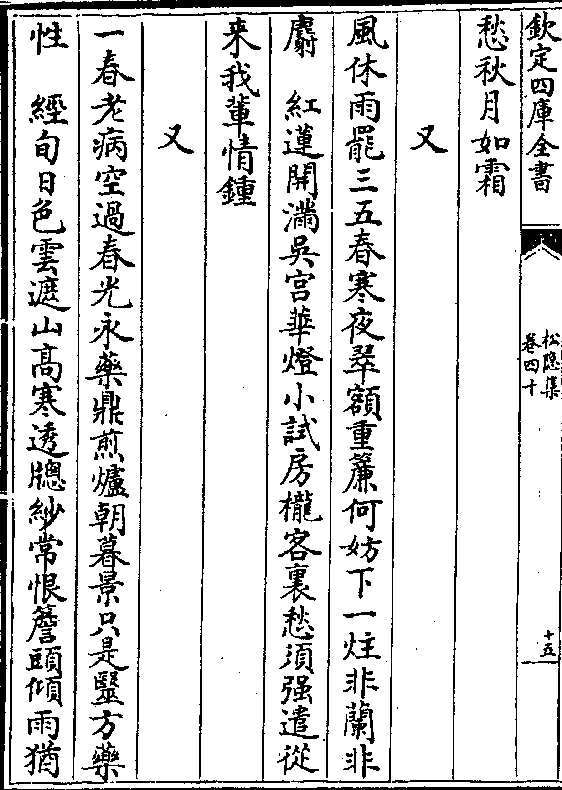 欽定四庫全書
松隐集
卷四十
十五
愁秋月如霜
又
風休雨罷三五春寒夜翠額重簾何妨下一炷非蘭非
麝　紅蓮開滿吳宫華燈小試房櫳客裏愁須强遣從
来我輩情鍾
又
一春老病空過春光永藥鼎煎爐朝暮景只是毉方藥
性　經旬日色雲遮山高寒透牕紗常恨簷頭傾雨猶